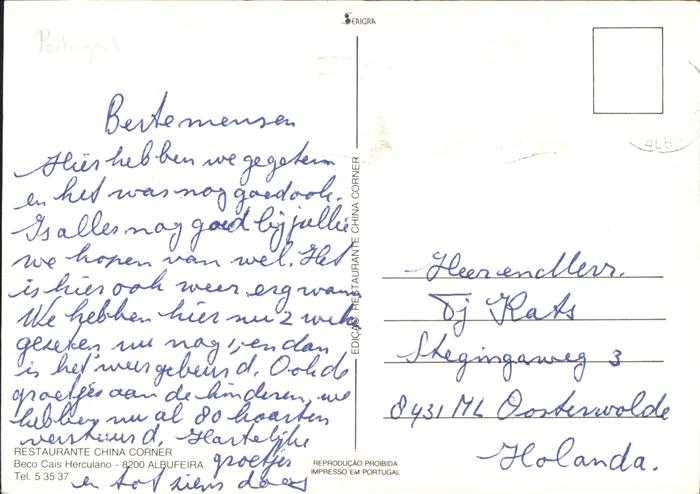 SERIGRA
Portugal
Beste mensen
Hier hebben we gegeten
en het was nog goed ook.
Is alles nog goed bij jullie
we hopen van wel. Het
is hier ook weer erg warm
We hebben hier nu 2 weken
gezeten nu nog 1, en dan
is het weer gebeurd. Ook de
groetjes aan de kinderen, we
hebben nu al 80 kaarten
verstuurd. Hartelijke
groetjes
en tot ziens
RESTAURANTE CHINA CORNER
Beco Cais Herculano - 8200 ALBUFEIRA
Tel. 5 35 37
EDIÇÃO: RESTAURANTE CHINA CORNER
REPRODUÇÃO PROIBIDA
IMPRESSO EM PORTUGAL
Heer en Mevr.
Tj Kats
Stegingaweg 3
8431 ML Oosterwolde
Holanda.